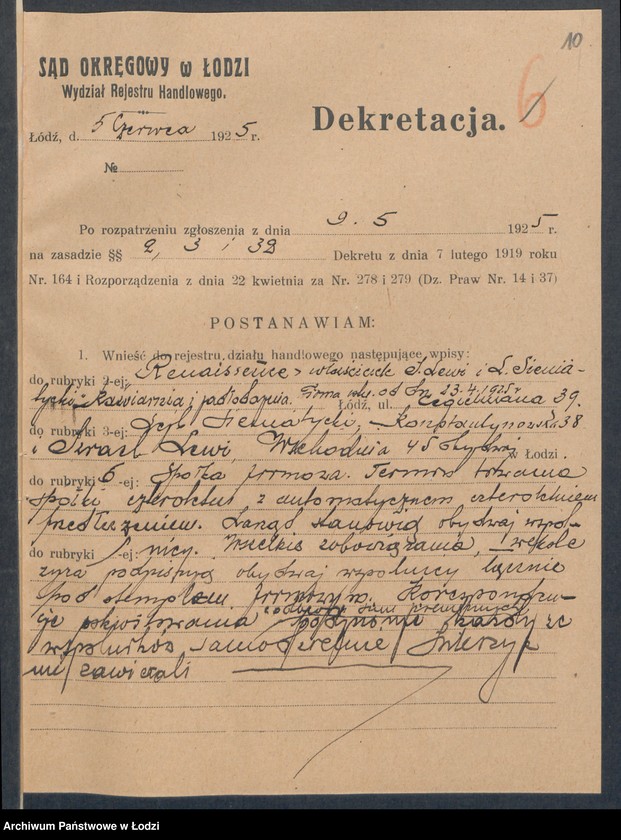 10
SĄD OKRĘGOWY w ŁODZI
Wydział Rejestru Handlowego.
6
Dekretacja.
Łódź, d. 5 Czerwca 1925 r.
№
Po rozpatrzeniu zgłoszenia z dnia 9. 5 1925 r.
na zasadzie §§ 2, 3 i 32 Dekretu z dnia 7 lutego 1919 roku
Nr. 164 i Rozporządzenia z dnia 22 kwietnia za Nr. 278 i 279 (Dz. Praw Nr. 14 i 37)
POSTANAWIAM:
1. Wnieść do rejestru działu handlowego następujące wpisy:
do rubryki 2-ej: "Renaissence" właściciele I. Lewi i L. Siemia-
tycki. Kawiarnia i jadłodajnia. Firma istn. od dn. 23.4.1925 r.
Łódź, ul. Cegielniana 39.
do rubryki 3-ej: Siemiatycki, Konstantynowska 38
i Izrael Lewi, Wschodnia 45 obydwaj w Łodzi.
do rubryki 6-ej: Spółka firmowa. Termin trwania
spółki czteroletni z automatycznem czteroletniem
przedłużeniem. Zarząd stanowią obydwaj wspól-
do rubryki -ej: nicy. Wszelkie zobowiązania, weksle
podpisują obydwaj wspólnicy łącznie
pod stemplem firmowym. Koresponden-
cje pokwitowania każdy ze
wspólników samodzielnie. Intercyzy
nie zawierali
Archiwum Państwowe w Łodzi